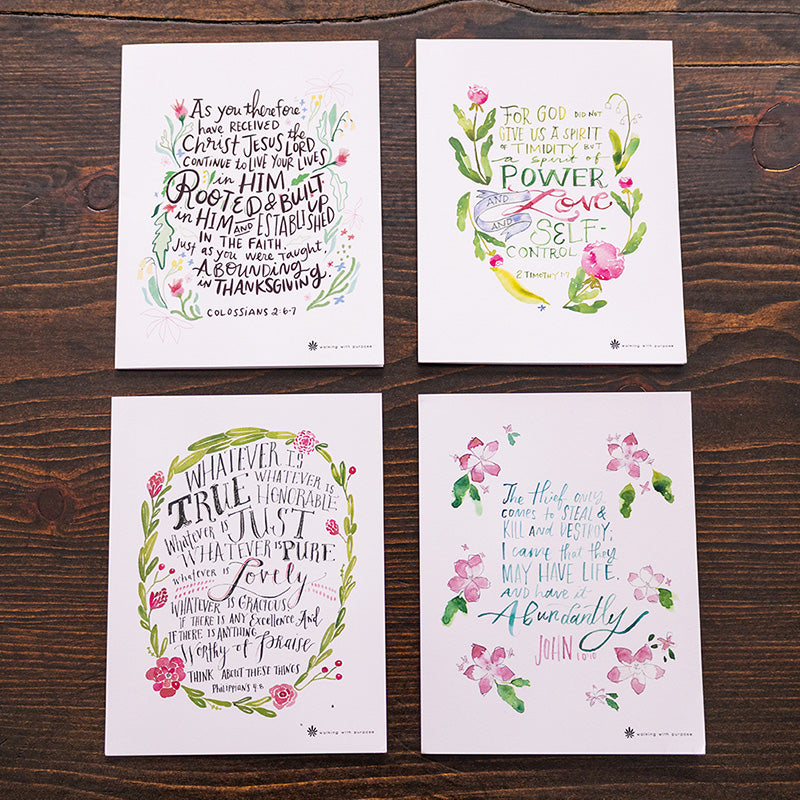 As you therefore
have RECEIVED
Christ JESUS the LORD
CONTINUE to LIVE YOUR LIVES
in HIM
ROOTED & BUILT UP
in HIM AND ESTABLISHED
IN THE FAITH.
Just as you were taught
ABOUNDING
IN THANKSGIVING.
COLOSSIANS 2:6-7
walking with purpose
FOR GOD DID NOT
GIVE US A SPIRIT
OF TIMIDITY BUT
a spirit of
POWER
AND Love
AND SELF-
CONTROL
2 TIMOTHY 1:7
walking with purpose
WHATEVER IS
TRUE WHATEVER IS HONORABLE
Whatever is JUST
WHATEVER IS PURE
whatever is Lovely
WHATEVER IS GRACIOUS
IF THERE IS ANY Excellence And
IF THERE IS ANYTHING
Worthy of Praise
THINK ABOUT THESE THINGS
Philippians 4:8
walking with purpose
The thief only
comes to STEAL &
KILL AND DESTROY;
I came that they
MAY HAVE LIFE.
and have it
Abundantly
JOHN 10:10
walking with purpose